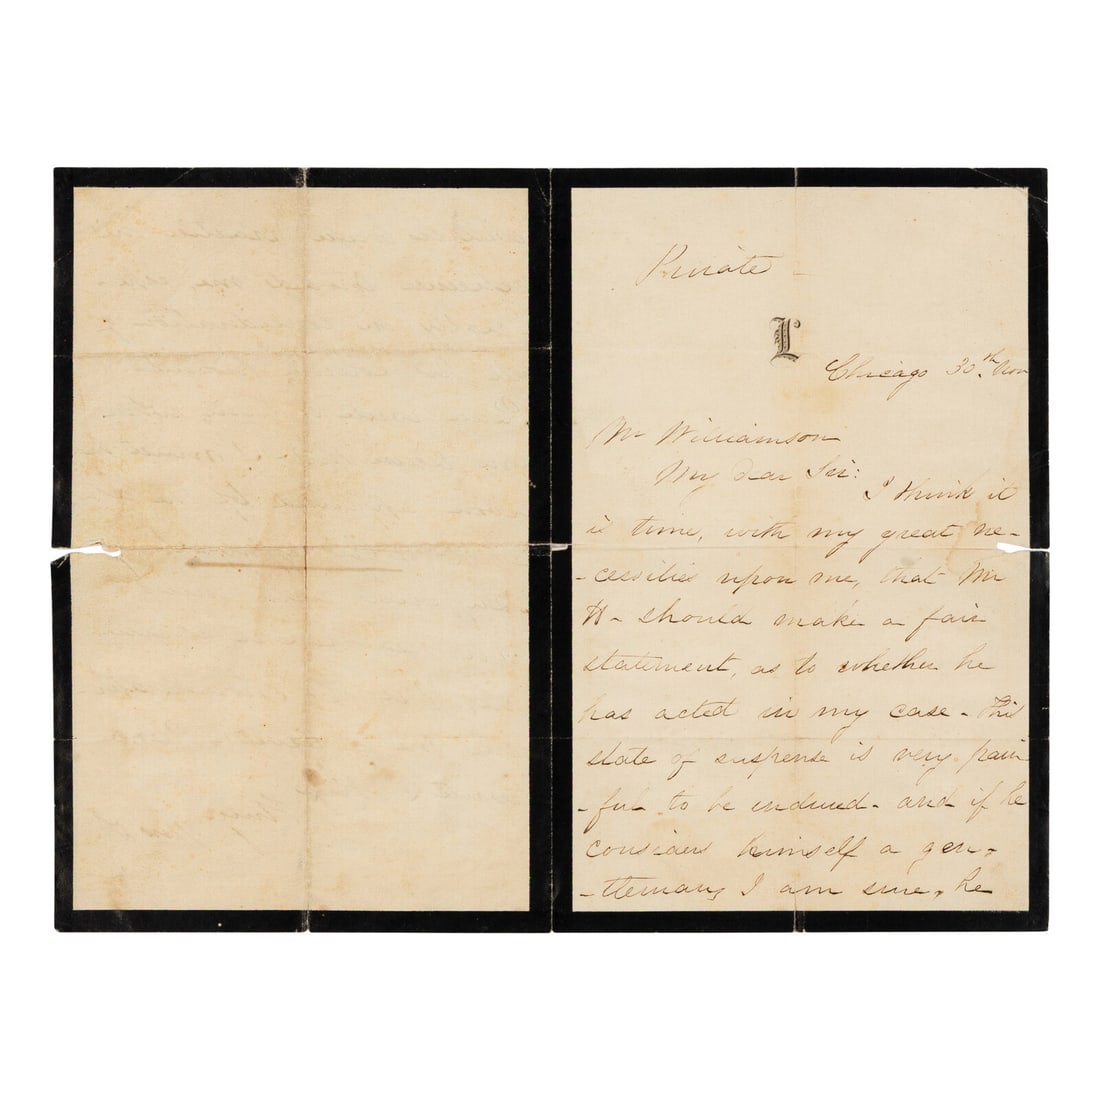 Private -
L
Chicago 30th. Nov
Mr Williamson
My Dear Sir:
I think it
is time, with my great ne-
-cessities upon me, that Mr
H- should make a fair
statement, as to whether he
has acted in my case - This
state of suspense is very pain
-ful to be endured - and if he
considers himself a gen-
-tleman, I am sure, he